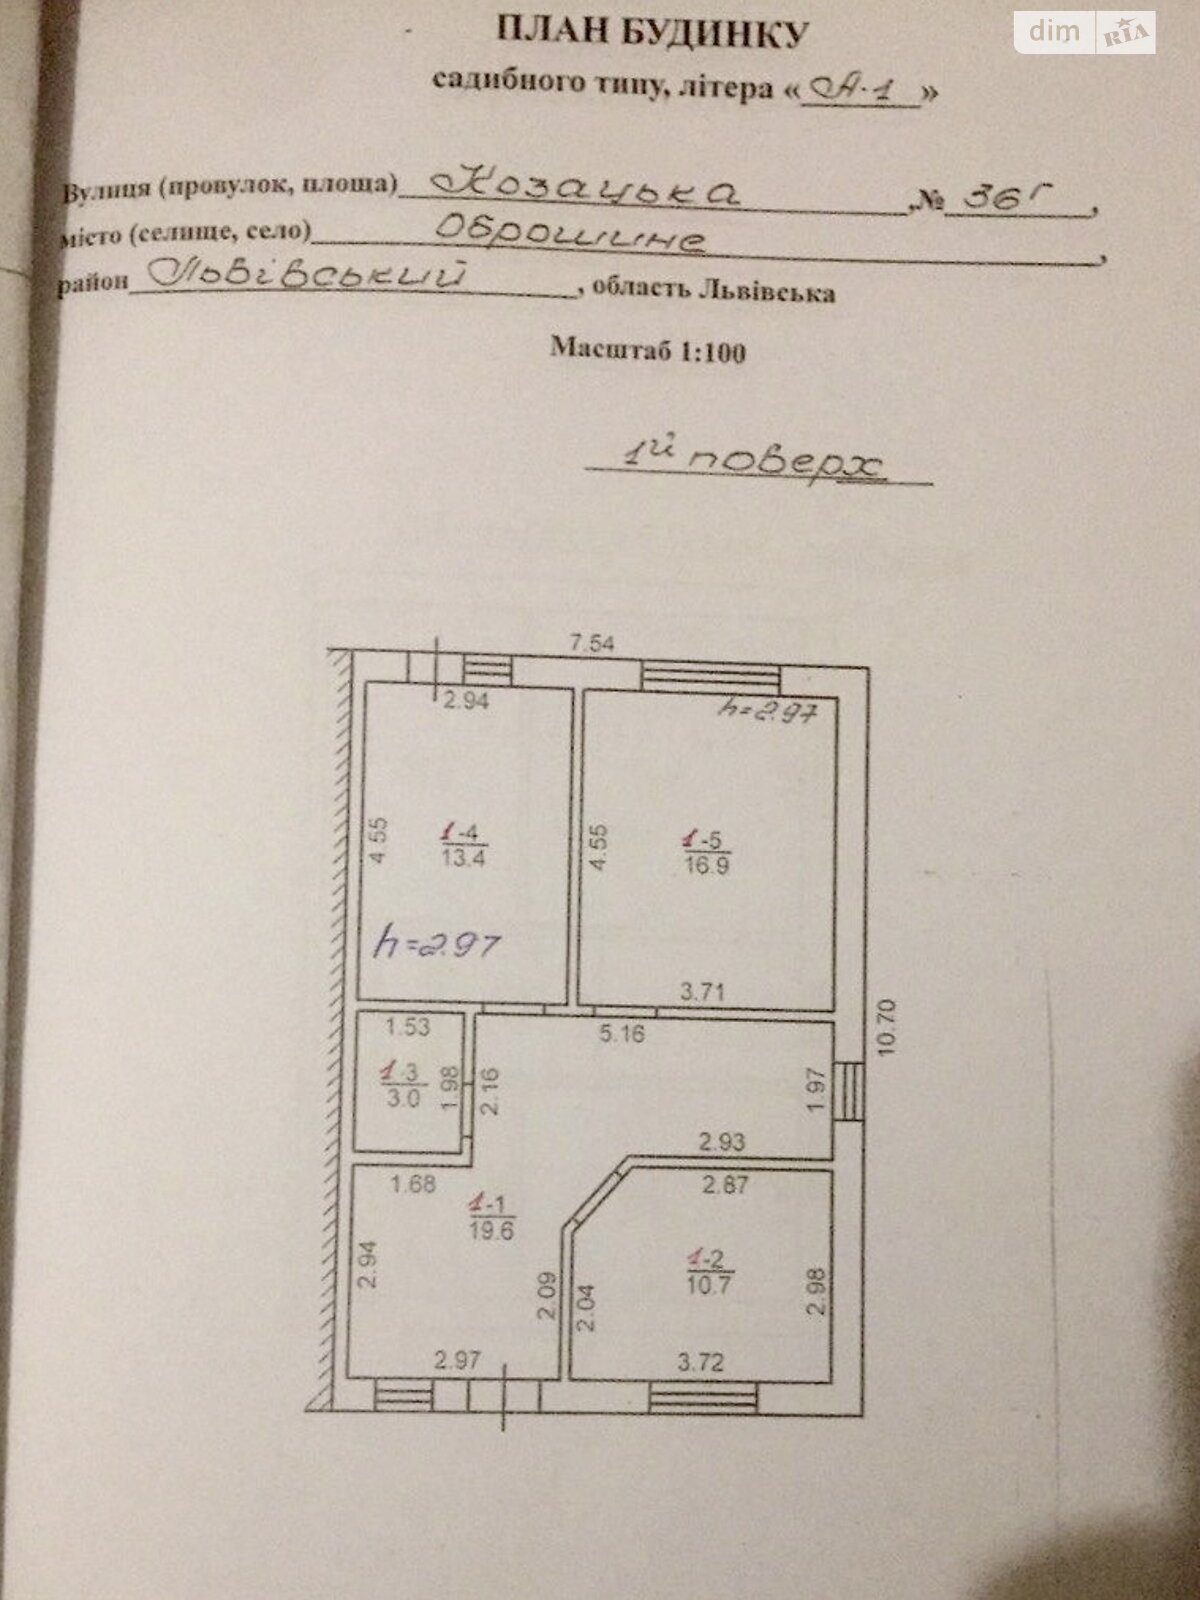 dim RIA
ПЛАН БУДИНКУ
садибного типу, літера « А-1 »
Вулиця (провулок, площа) Козацька , № 36г ,
місто (селище, село) Оброшине ,
район Львівський , область Львівська
Масштаб 1:100
1й поверх
7.54
2.94
h=2.97
4.55
1-4
13.4
4.55
1-5
16.9
h=2.97
3.71
1.53
5.16
10.70
1-3
3.0
1.98
2.16
1.97
2.93
1.68
2.87
1-1
19.6
2.94
2.09
2.04
1-2
10.7
2.98
2.97
3.72